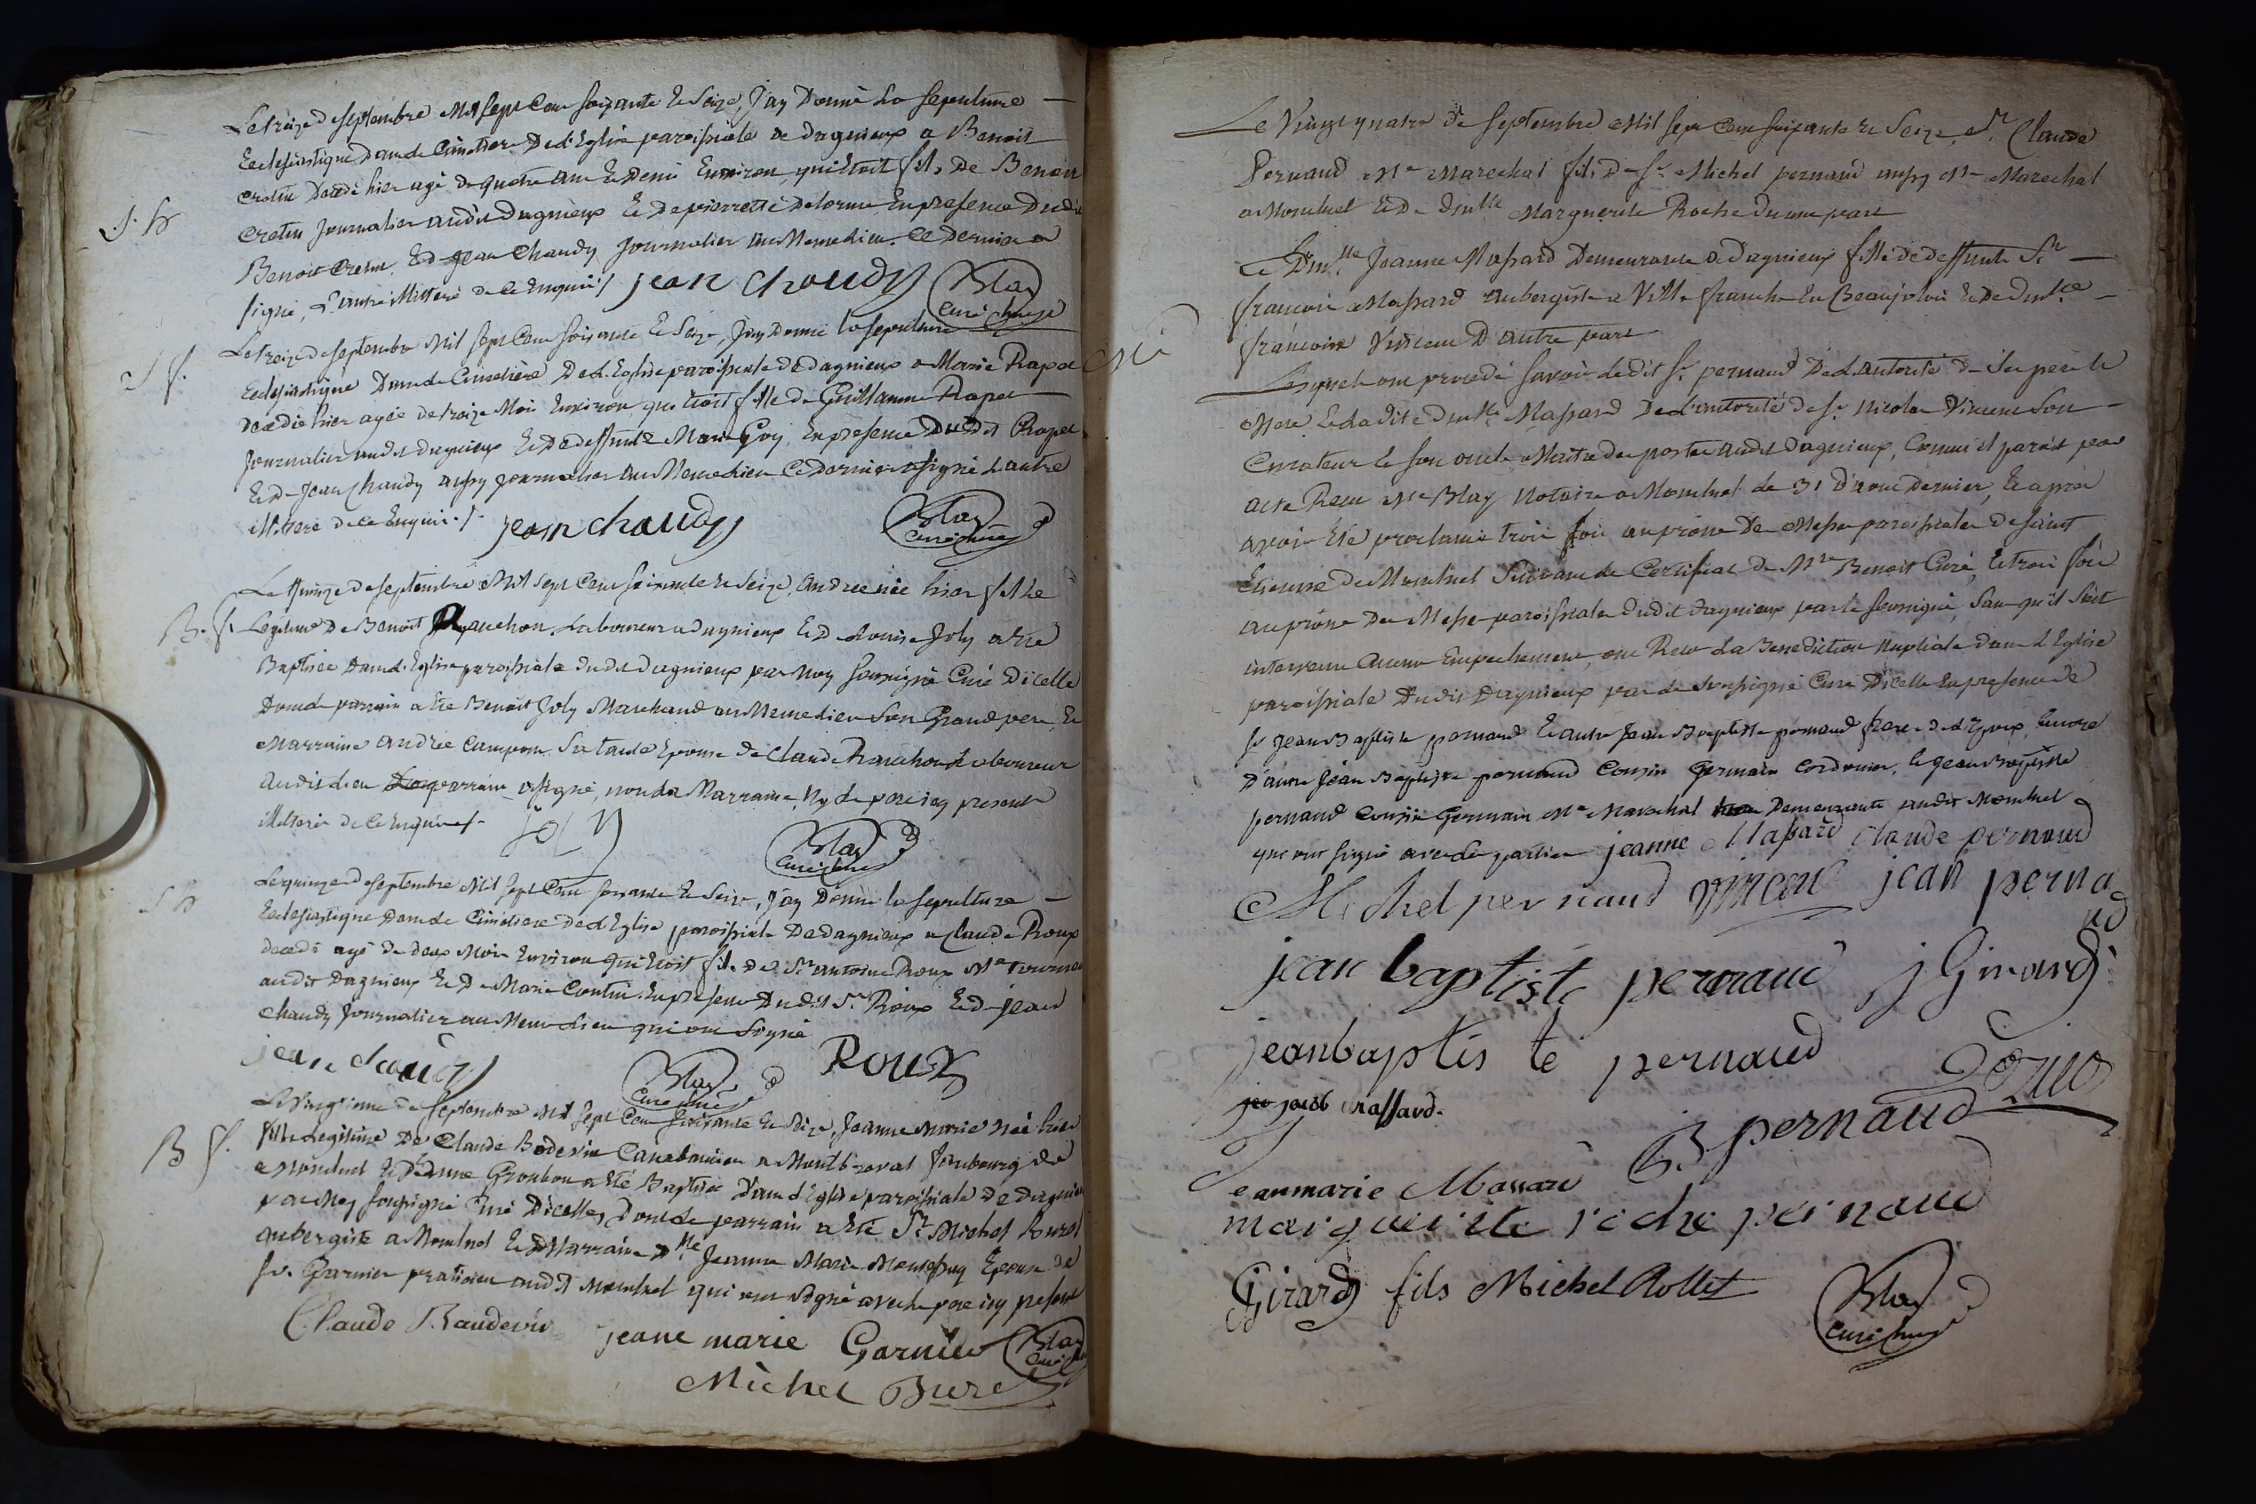 S. h
Le treize septembre Mil sept Cens soixante et Seize, J'ay Donné La sepulture
Ecclesiastique Dans le Cimetiere De l'Eglise paroissiale de dagnieux a Benoit
Cretin Decedé hier agé de quatre ans Et Demi Environ, qui Etoit fils De Benoit
Cretin Journalier audit Dagnieux Et De pierrette Delorme, En presence Dudit
Benoit Cretin Et De Jean Chaudy Journalier au Meme lieu. Ce Dernier a
signé, L'autre illiteré de ce Enquis /
jean chaudy Blay
Curé
S f.
Le treize septembre Mil sept Cens soixante Et Seize, J'ay Donné la sepulture
Ecclesiastique Dans le Cimetiere De l'Eglise paroissiale De dagnieux a Marie Rapet
decedée hier agée de treize Mois Environ qui Etoit fille de Guillaume Rapet
Journalier audit dagnieux Et De deffunte Marie Goy, En presence Dudit Rapet
Et De Jean Chaudy aussy Journalier au Meme lieu Ce Dernier a signé L'autre
illiteré de ce Enquis. /.
jean chaudy Blay
Curé
B. f.
Le quinze de septembre Mil sept Cens soixante Et Seize, andrée née hier fille
Legitime De Benoit Ranchon Laboureur a dagnieux Et De Louise Joly a Eté
Baptisée Dans l'Eglise paroissiale dudit dagnieux par Moy soussigné Curé D'icelle
Dont le parrain a Eté Benoit Joly Marchand au Meme lieu Son Grand pere, Et
Marraine andrée Sa tante Epouse de Claude Ranchon Laboureur
audit lieu Le parrain a signé, non la Marraine, Ny le pere icy present
illiterés de ce Enquis /.
Joly Blay
Curé
S h
Le quinze de septembre Mil sept Cens soixante Et Seize, J'ay Donné la sepulture
Ecclesiastique Dans le Cimetiere De l'Eglise paroissiale De dagnieux a Claude Roux
decedé agé de deux Mois Environ qui Etoit fils De Sr antoine Roux Me
audit Dagnieux Et De Marie En presence Dudit Sr Roux Et De jean
Chaudy Journalier au Meme lieu qui ont Signé
jean chaudy Blay Roux
Curé
B f.
Le vingt de septembre Mil sept Cens soixante Et Seize, Jeanne Marie née hier
fille Legitime De Claude Bodevin a faubourg de
Montluel Et D'anne a Eté Baptisée Dans l'Eglise paroissiale De dagnieux
par Moy soussigné Curé D'icelle, Dont Le parrain a Eté Sr Michel
aubergiste a Montluel Et Marraine Dlle Jeanne Marie Epouse de
Sr. Garnier praticien audit Montluel qui ont signé avec le pere icy present
Claude Baudevin jeane marie Garnier Blay
Curé
Michel Buret
Le Vingt quatre De septembre Mil sept Cens soixante Et Seize, Sr Claude
Pernaud Me Marechal fils De Sr Michel pernaud aussy Me Marechal
a Montluel Et De Dmlle Marguerite Roche D'une part
Et Dmlle Jeanne Massard Demeurante a Dagnieux fille de deffunt Sr
françois Massard aubergiste a Ville franche En Beaujolois Et De Dmlle
françoise Vincent D'autre part
Lesquels ont procedé savoir ledit Sr pernaud De L'autorité De Ses pere Et
Mere Et ladite Dmlle Massard De L'autorité de Sr Nicolas Vincent Son
Curateur Et Son oncle Maitre des postes audit Dagnieux, Comme il paroit par
acte Recu Me Blay Notaire a Montluel Le 31 D'aout Dernier, Et apres
avoir Eté proclamés trois fois au prône De Messe paroissiale De Saint
Etienne De Montluel Suivant Le Certificat de Mre Benoit Curé, Et trois fois
au prône Des Messe paroissiale dudit dagnieux par le soussigné, Sans qu'il Soit
intervenu aucun Empechement, ont Recu La Benediction Nuptiale Dans L'Eglise
paroissiale Dudit Dagnieux par le soussigné Curé D'icelle En presence de
Sr Jean Baptiste pernaud Et autre Jean Baptiste pernaud frere De L'Epoux, Encore
D'autre Jean Baptiste pernaud Cousin Germain Cordonier, Et Jean Baptiste
pernaud Cousin Germain Me Marechal Demeurants audit Montluel
qui ont signé avec les parties jeanne Masard Claude pernaud
Michel pernaud Vincent jean perna
ud
jean baptiste pernaud j Girard
jean baptis te pernaud
jacob Massard.
B pernaud
Jeanmarie Massard
marguerite roche pernaud
Girard fils Michel Rollet
Blay
Curé